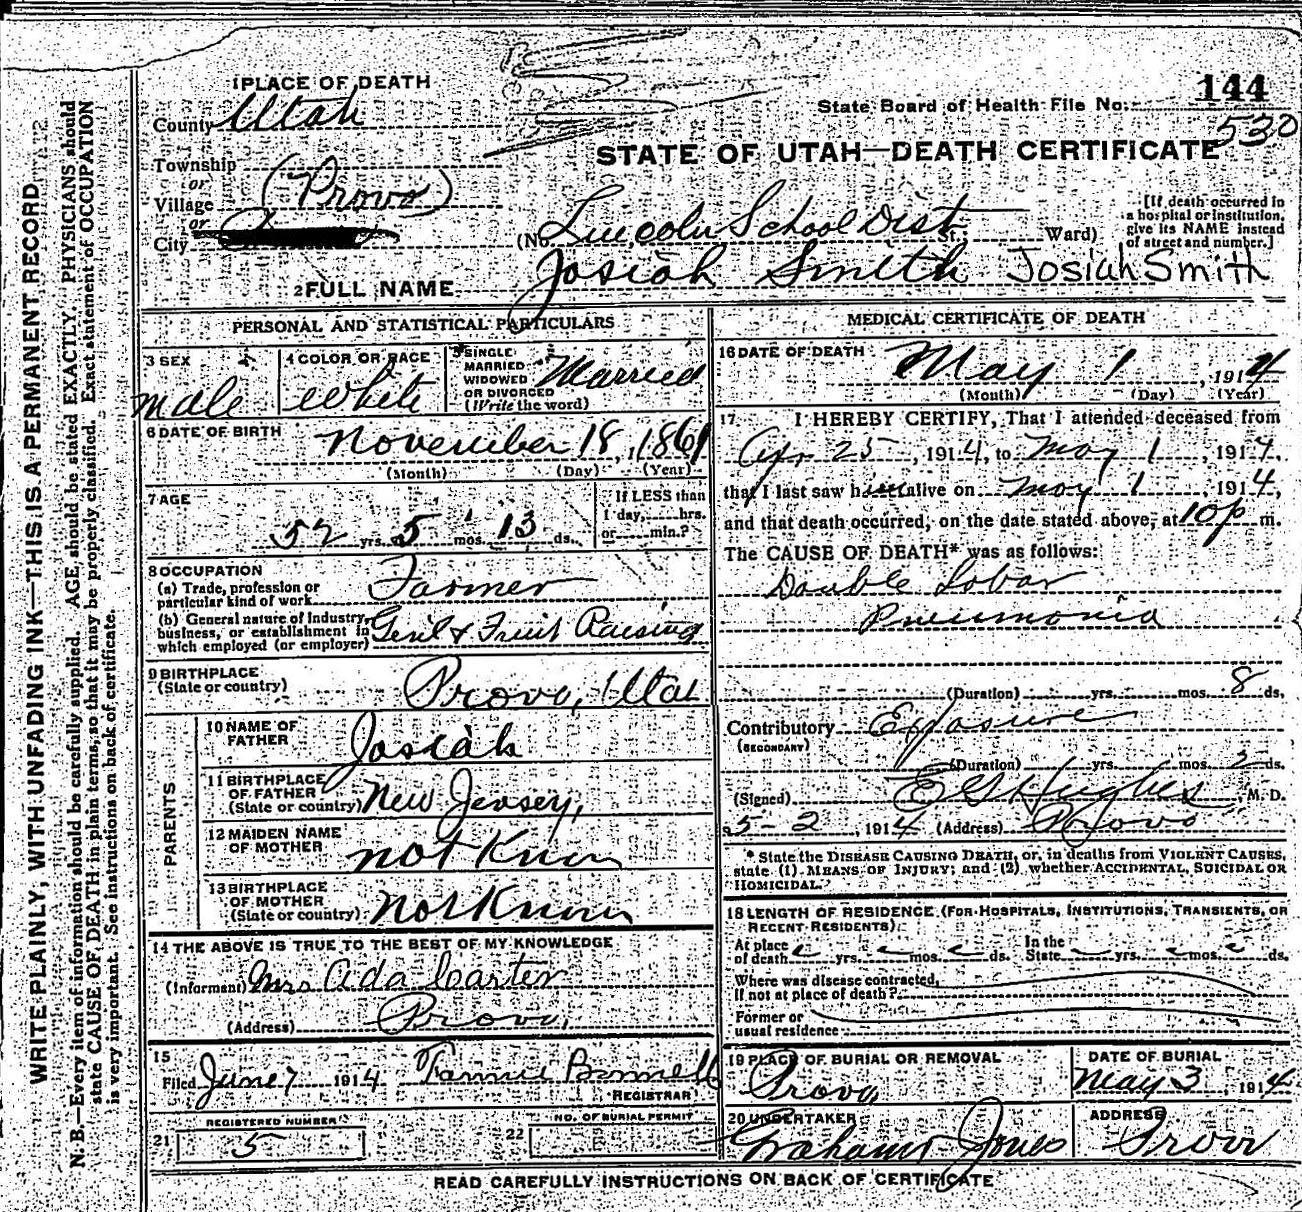 1 PLACE OF DEATH
County Utah
State Board of Health File No. 144
530
STATE OF UTAH—DEATH CERTIFICATE
Township
or
Village (Provo)
or
City
(No. Lincoln School Dist St. Ward)
[If death occurred in
a hospital or institution,
give its NAME instead
of street and number.]
2 FULL NAME Josiah Smith Josiah Smith
PERSONAL AND STATISTICAL PARTICULARS
3 SEX
male
4 COLOR OR RACE
White
5 SINGLE
MARRIED
WIDOWED
OR DIVORCED
(Write the word)
Married
6 DATE OF BIRTH
November 18, 1861
(Month) (Day) (Year)
7 AGE
52 yrs. 5 mos. 13 ds.
If LESS than
1 day, hrs.
or min.?
8 OCCUPATION
(a) Trade, profession or
particular kind of work Farmer
(b) General nature of Industry,
business, or establishment in
which employed (or employer) Gen'l & Fruit Raising
9 BIRTHPLACE
(State or country) Provo, Utah
PARENTS
10 NAME OF
FATHER Josiah
11 BIRTHPLACE
OF FATHER
(State or country) New Jersey,
12 MAIDEN NAME
OF MOTHER not Known
13 BIRTHPLACE
OF MOTHER
(State or country) Not Known
14 THE ABOVE IS TRUE TO THE BEST OF MY KNOWLEDGE
(Informant) Mrs Ada Carter
(Address) Provo,
15
Filed June 7 1914 Fannie Bonnell
REGISTRAR
REGISTERED NUMBER
21 5
NO. OF BURIAL PERMIT
22
MEDICAL CERTIFICATE OF DEATH
16 DATE OF DEATH
May 1, 1914
(Month) (Day) (Year)
17. I HEREBY CERTIFY, That I attended deceased from
Apr 25, 1914, to May 1, 1914,
that I last saw him alive on May 1, 1914,
and that death occurred, on the date stated above, at 10 p m.
The CAUSE OF DEATH* was as follows:
Double Lobar
Pneumonia
(Duration) yrs. mos. 8 ds.
Contributory Exposure
(SECONDARY)
(Duration) yrs. mos. 2 ds.
(Signed) E G Hughes, M. D.
5-2, 1914 (Address) Provo
* State the DISEASE CAUSING DEATH, or, in deaths from VIOLENT CAUSES,
state (1) MEANS OF INJURY; and (2) whether ACCIDENTAL, SUICIDAL OR
HOMICIDAL.
18 LENGTH OF RESIDENCE (FOR HOSPITALS, INSTITUTIONS, TRANSIENTS, OR
RECENT RESIDENTS).
At place
of death yrs. mos. ds.
In the
State yrs. mos. ds.
Where was disease contracted,
If not at place of death?
Former or
usual residence
19 PLACE OF BURIAL OR REMOVAL
Provo,
DATE OF BURIAL
May 3 1914
20 UNDERTAKER
Graham Jones
ADDRESS
Provo
READ CAREFULLY INSTRUCTIONS ON BACK OF CERTIFICATE
WRITE PLAINLY, WITH UNFADING INK—THIS IS A PERMANENT RECORD
N. B.—Every item of information should be carefully supplied. AGE should be stated EXACTLY. PHYSICIANS should
state CAUSE OF DEATH in plain terms, so that it may be properly classified. Exact statement of OCCUPATION
is very important. See instructions on back of certificate.